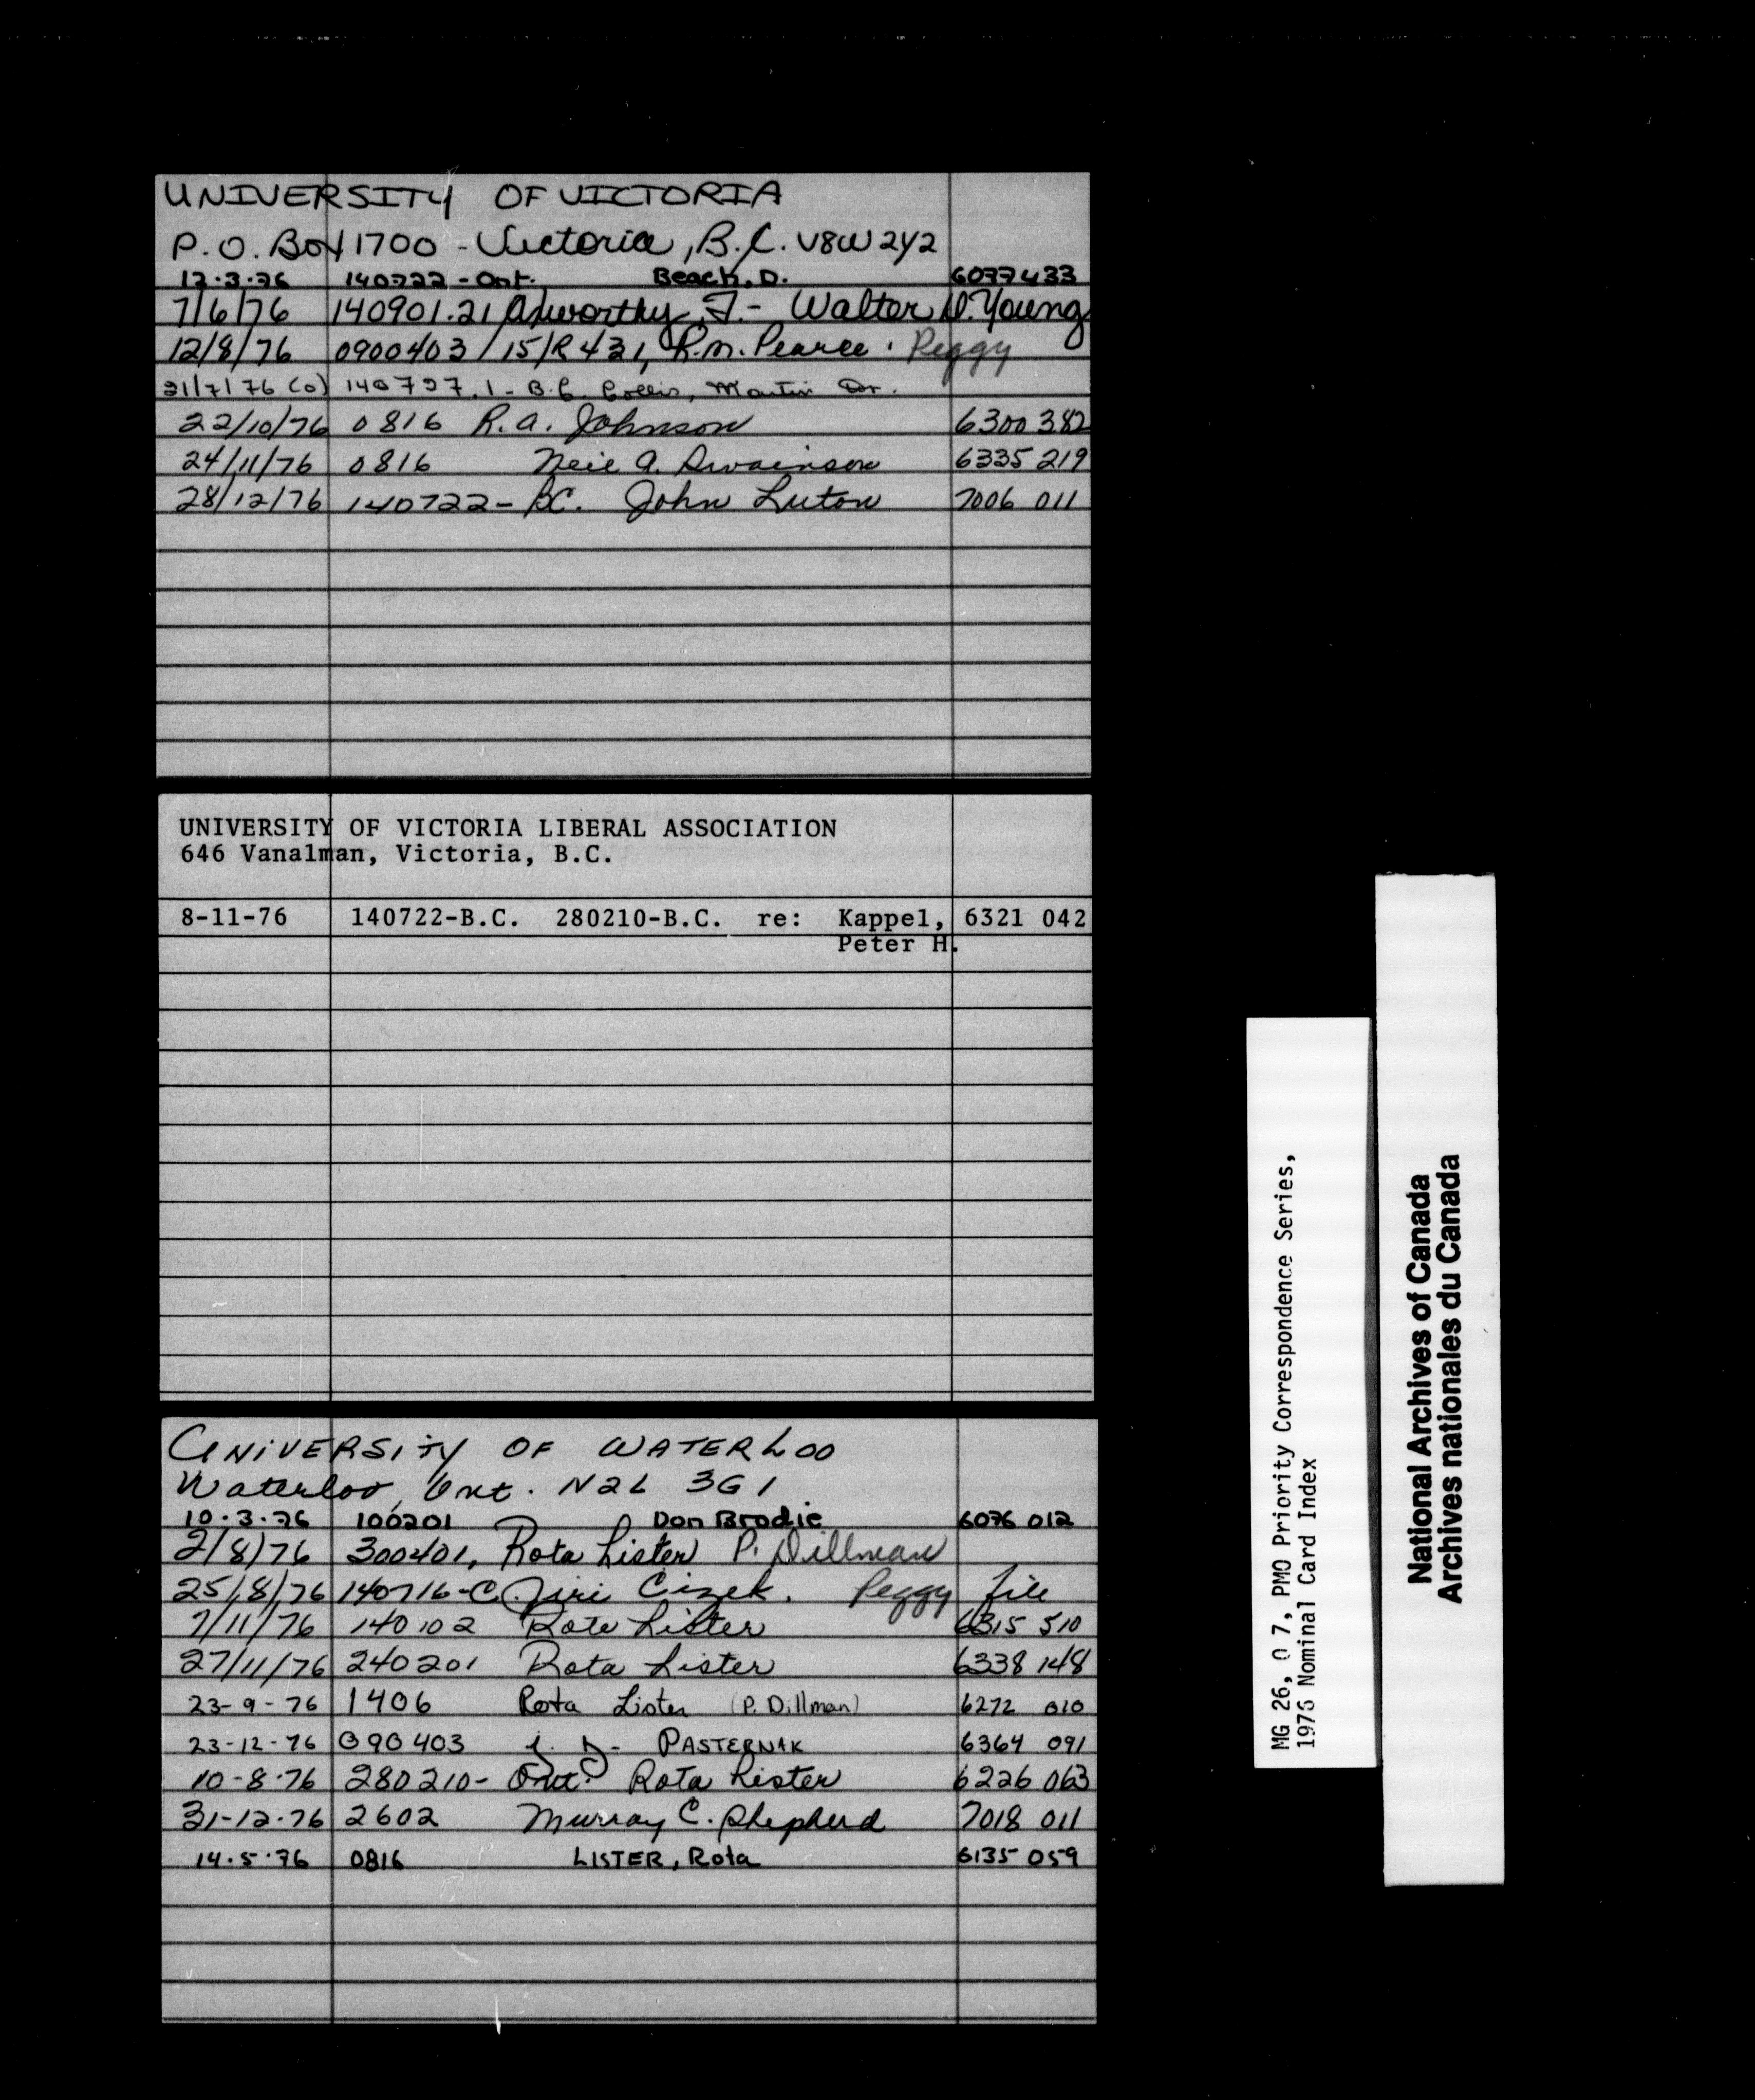 UNIVERSITY OF VICTORIA
P.O. Box 1700 - Victoria, B.C. V8W 2Y2
12.3.76 140722 - Ont. Beach, D. 6077433
7/6/76 140901.21 Axworthy, T. - Walter D. Young
12/8/76 0900403/15/R431, R.M. Pearce. Peggy
31/7/76 (o) 140797.1 - B.C. Collis, Martin Dr.
22/10/76 0816 R.A. Johnson 6300 382
24/11/76 0816 Neil A. Swainson 6335 219
28/12/76 140722 - BC. John Luton 7006 011
UNIVERSITY OF VICTORIA LIBERAL ASSOCIATION
646 Vanalman, Victoria, B.C.
8-11-76 140722-B.C. 280210-B.C. re: Kappel, 6321 042
Peter H.
UNIVERSITY OF WATERLOO
Waterloo, Ont. N2L 3G1
10.3.76 100201 Don Brodie 6076 012
2/8/76 300401, Rota Lister P. Dillman
25/8/76 140716-C Jiri Cizek. Peggy file
7/11/76 140102 Rota Lister 6315 510
27/11/76 240201 Rota Lister 6338 148
23-9-76 1406 Rota Lister (P. Dillman) 6272 010
23-12-76 090403 J. J. PASTERNAK 6364 091
10-8-76 280210 - Ont. Rota Lister 6226 063
31-12-76 2602 Murray C. Shepherd 7018 011
14.5.76 0816 LISTER, Rota 6135 059
MG 26, O 7, PMO Priority Correspondence Series,
1976 Nominal Card Index
National Archives of Canada
Archives nationales du Canada